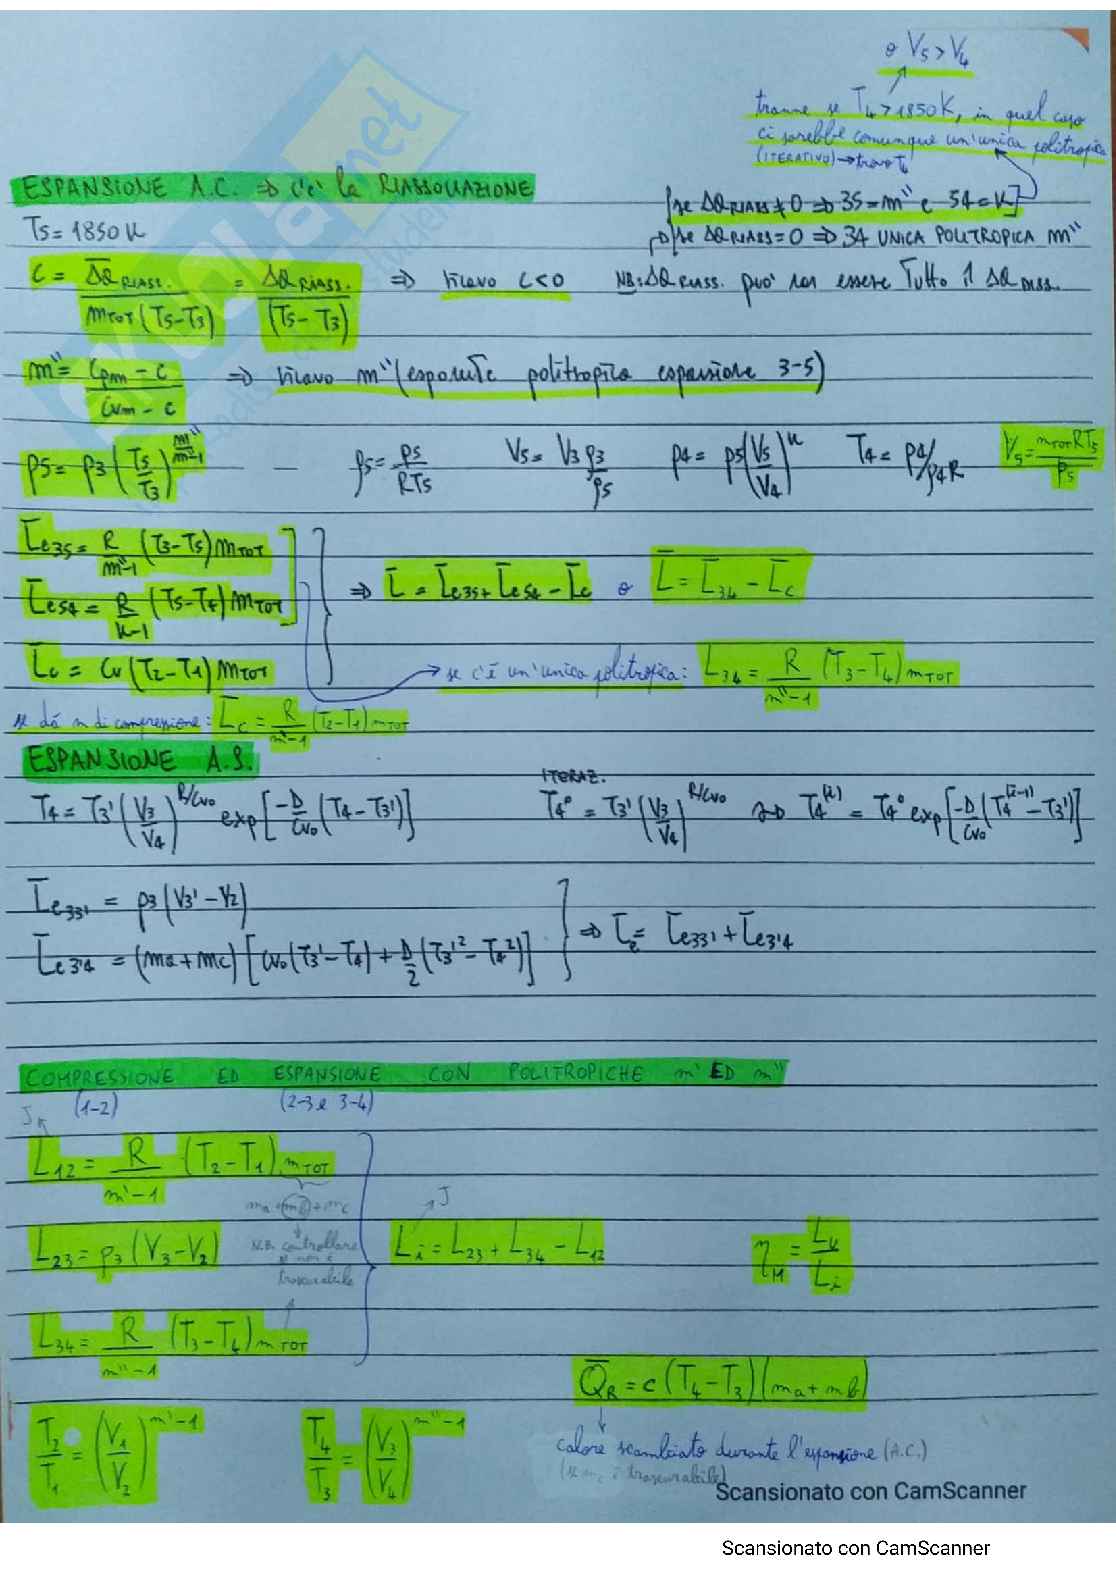 o V5 > V4
tranne se T4 > 1850 K, in quel caso
ci sarebbe comunque un'unica politropica
(ITERATIVO) → trovo T4
ESPANSIONE A.C. ⇒ c'è la RIASSOCIAZIONE
[se ΔQRIASS ≠ 0 ⇒ 35 = m'' e 54 = K]
T5 = 1850 K
[se ΔQRIASS = 0 ⇒ 34 UNICA POLITROPICA m''
c = Δ̅Q̅RIASS. / mTOT (T5 - T3) = ΔQRIASS. / (T5 - T3) ⇒ ricavo c<0 NB: ΔQRIASS. può non essere tutto il ΔQDISS.
m'' = (cpm - c) / (cvm - c) ⇒ ricavo m'' (esponente politropica espansione 3-5)
p5 = p3 (T5/T3)^(m''/m''-1) — ρ5 = p5/RT5 V5 = V3 ρ3/ρ5 p4 = p5 (V5/V4)^K T4 = p4/ρ4R V5 = mTOT R T5 / p5
L̅e35 = R/(m''-1) (T3 - T5) mTOT
L̅e54 = R/(K-1) (T5 - T4) mTOT ⇒ L̅ = L̅e35 + L̅e54 - L̅c o L̅ = L̅34 - L̅c
L̅c = cv (T2 - T1) mTOT → se c'è un'unica politropica: L34 = R/(m''-1) (T3 - T4) mTOT
se dà m di compressione: L̅c = R/(m'-1) (T2 - T1) mTOT
ESPANSIONE A.S.
ITERAZ.
T4 = T3' (V3/V4)^(R/cv0) exp[-D/cv0 (T4 - T3')] T4° = T3' (V3/V4)^(R/cv0) ⇒ T4^(i) = T4° exp[-D/cv0 (T4^(i-1) - T3')]
L̅e33' = p3 (V3' - V2)
L̅e3'4 = (ma + mc) [cv0 (T3' - T4) + D/2 (T3'² - T4²)] ⇒ L̅e = L̅e33' + L̅e3'4
COMPRESSIONE ED ESPANSIONE CON POLITROPICHE m' ED m''
J (1-2) (2-3 e 3-4)
L12 = R/(m'-1) (T2 - T1) mTOT
ma + mb + mc J
L23 = p3 (V3 - V2) N.B. controllare se non è trascurabile Li = L23 + L34 - L12 ηM = Lu/Li
L34 = R/(m''-1) (T3 - T4) mTOT
Q̅R = c (T4 - T3) (ma + mb)
T2/T1 = (V1/V2)^(m'-1) T4/T3 = (V3/V4)^(m''-1)
calore scambiato durante l'espansione (A.C.)
(se mc è trascurabile)
Scansionato con CamScanner
Scansionato con CamScanner